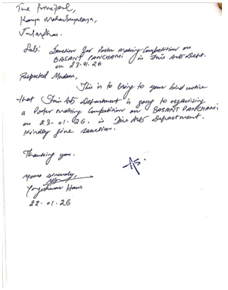 The Principal,
Kanya Mahavidyalaya,
Jalandhar.
Sub: Sanction for Poster making Competition on
BASANT PANCHAMI in Fine Arts Deptt.
on 23-01-26
Respected Madam,
This is to bring to your kind notice
that Fine Arts Department is going to organising
a Poster making Competition on BASANT PANCHAMI
on 23-01-26 in Fine Arts Department.
Kindly give sanction.
Thanking you.
Yours sincerely,
22-01-26